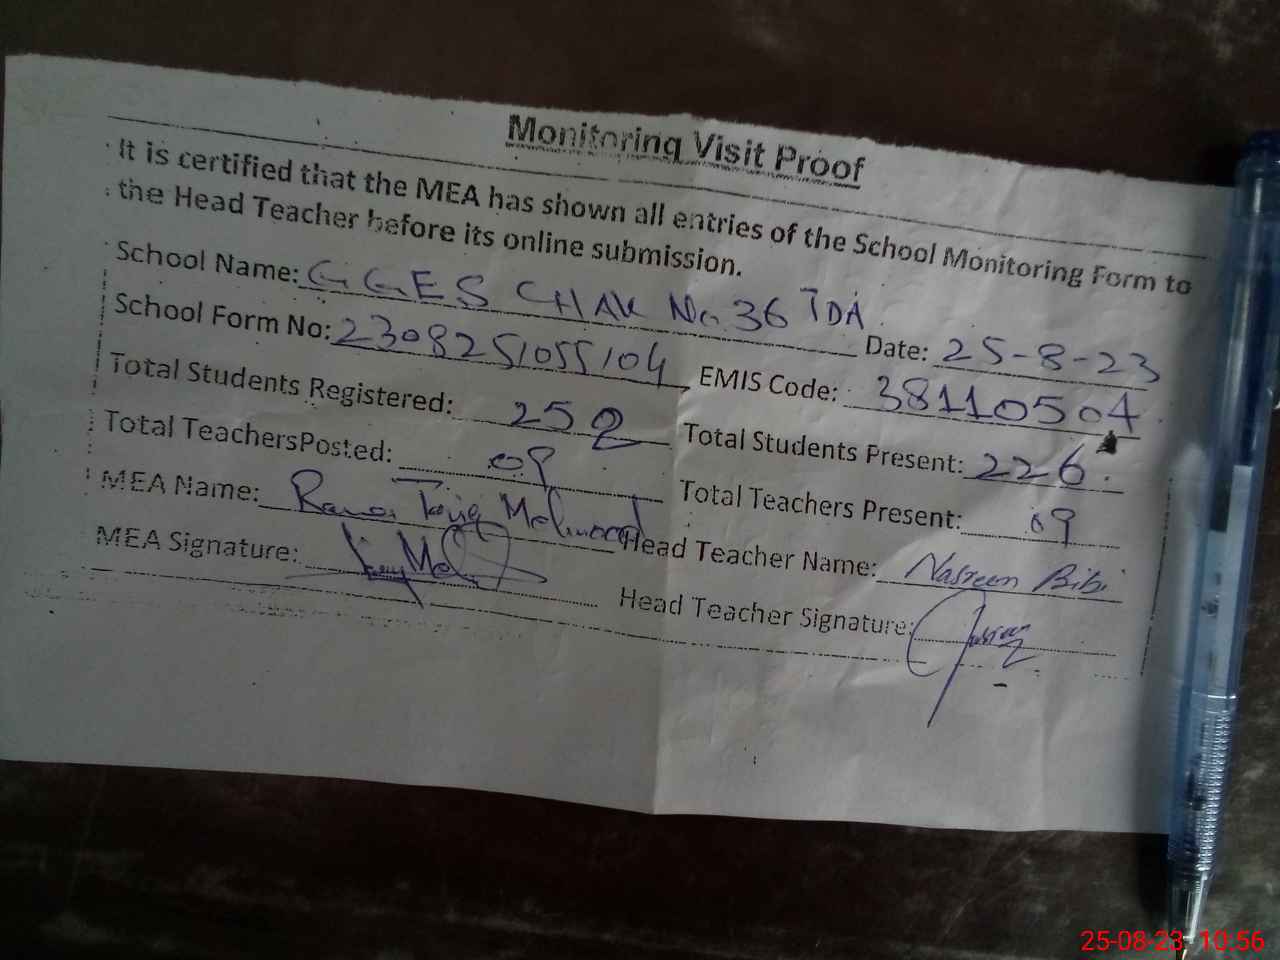 Monitoring Visit Proof
It is certified that the MEA has shown all entries of the School Monitoring Form to
the Head Teacher before its online submission.
School Name: GGES CHAK No. 36 TDA Date: 25-8-23
School Form No: 2308251055104 EMIS Code: 38110504
Total Students Registered: 252 Total Students Present: 226
Total TeachersPosted: 09 Total Teachers Present: 09
MEA Name: Rana Tariq Mehmood Head Teacher Name: Nasreen Bibi
MEA Signature: Head Teacher Signature:
25-08-23 10:56